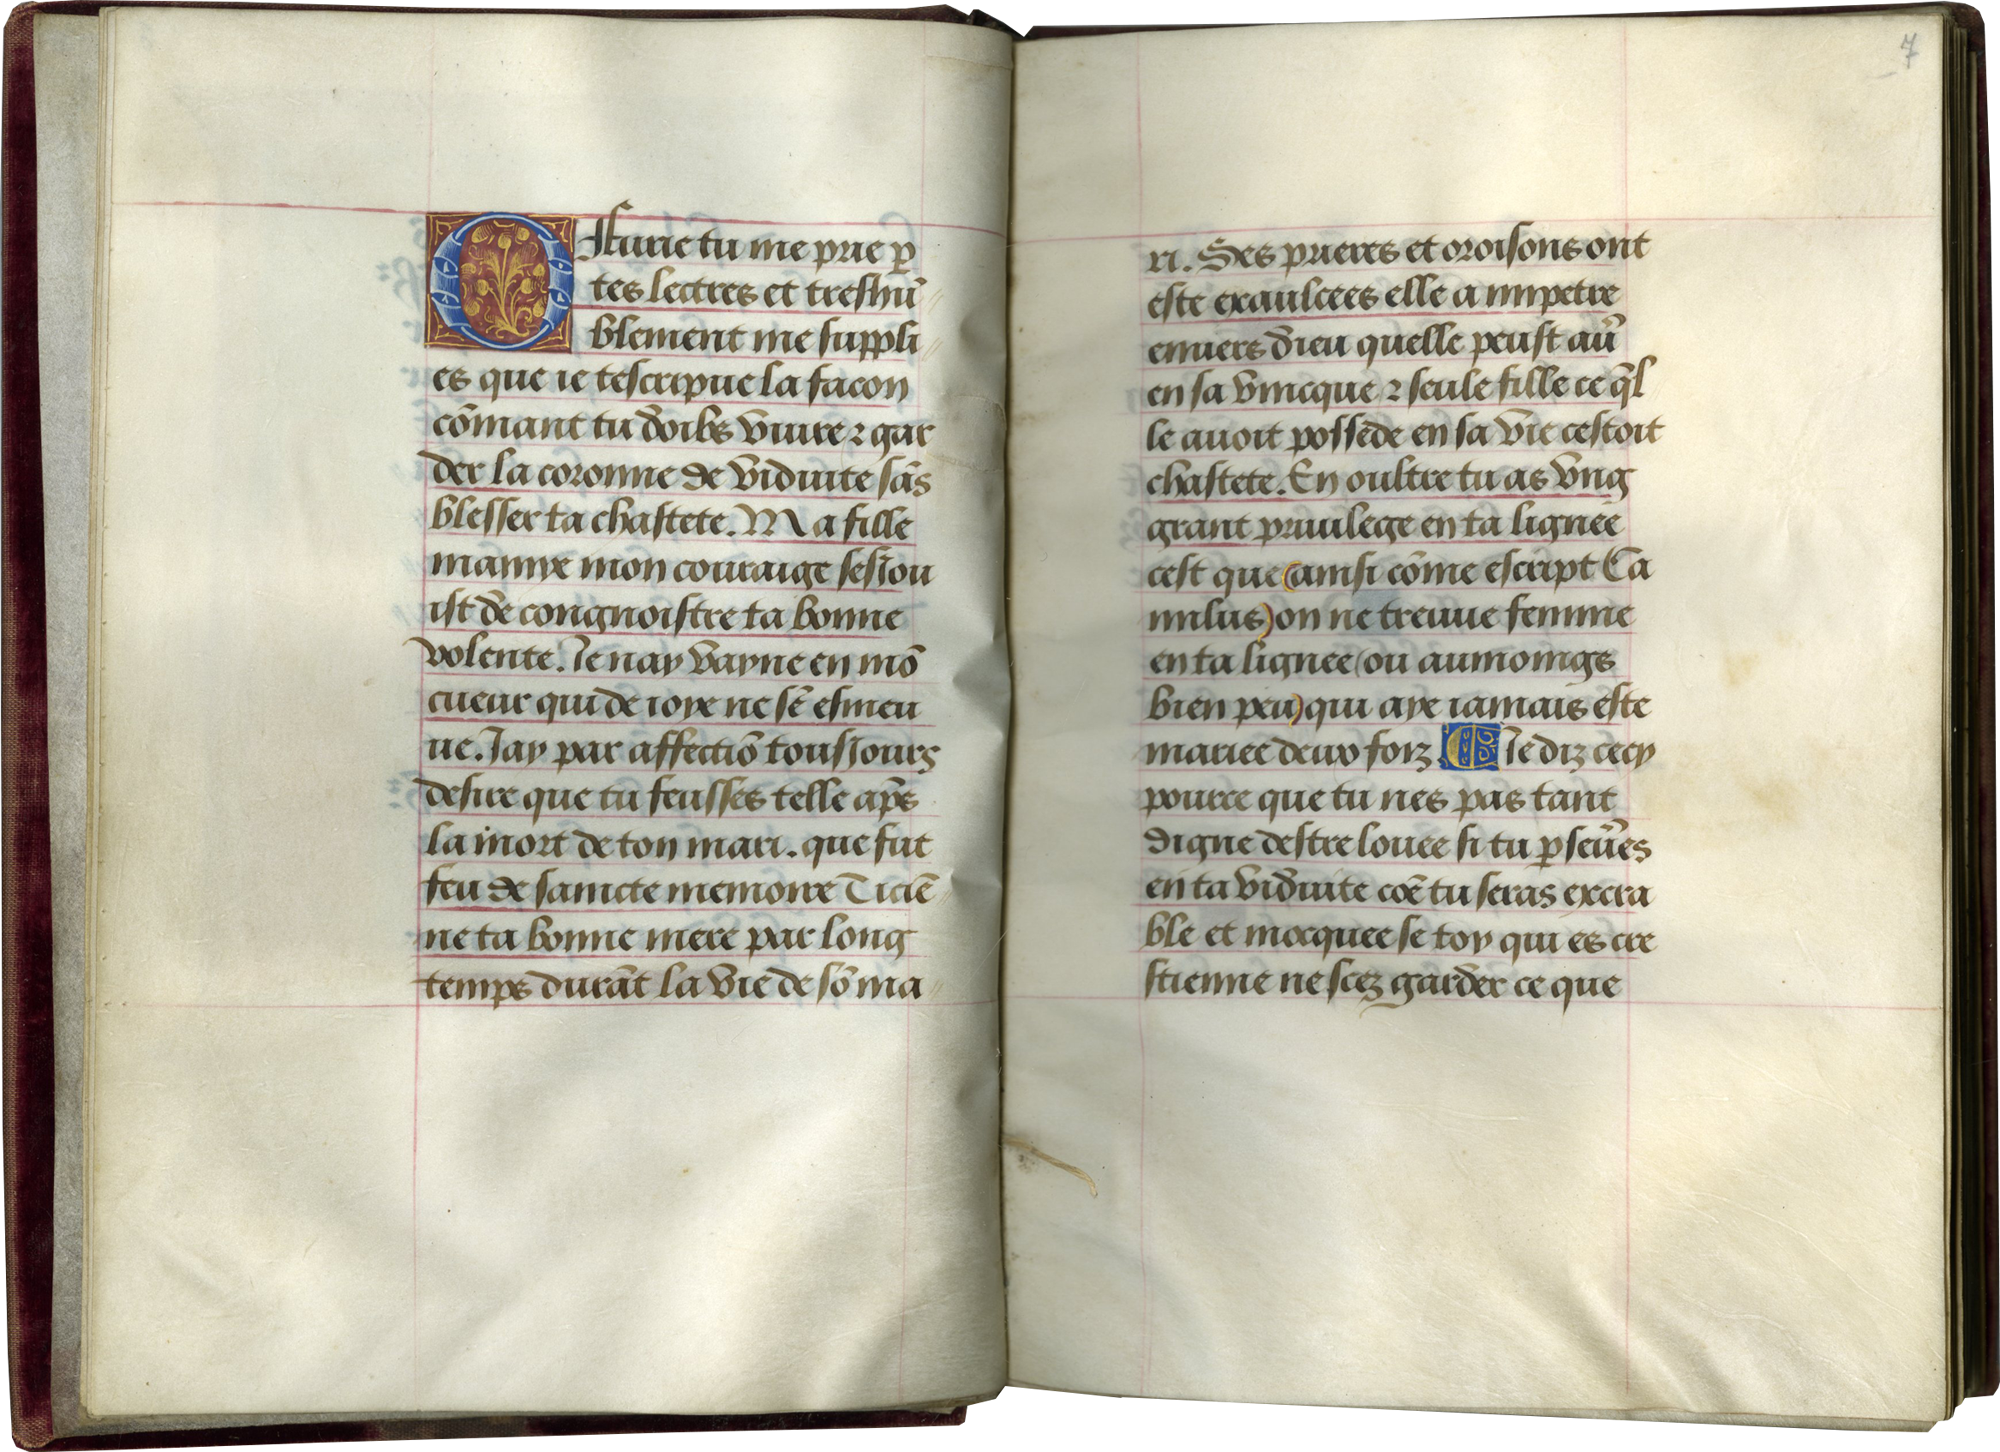 O Furie tu me prie p̱
tes lectres et treshũ
blement me suppli
es que ie tescripue la facon
cõmant tu doibs viure ⁊ gar
der la coronne de viduite sãs
blesser ta chastete. Ma fille
mamye mon couraige sesiou
ist de congnoistre ta bonne
volente. Ie nay vayne en mõ
cueur qui de ioye ne sẽ esmeu
ue. Iay par affectiõ tousiours
desire que tu feusses telle ap̃s
la mort de ton mari. que fut
feu de saincte memoire Ticiẽ
ne ta bonne mere par long
temps durãt la vie de sõ ma
7
ri. Ses prieres et oroisons ont
este exaulcees elle a impetre
enuers dieu quelle peust au͂
en sa vnicque ⁊ seule fille ce q̃l
le auoit possede en sa vie cestoit
chastete. En oultre tu as vng
grant priuilege en ta lignee
cest que (ainsi cõme escript Ca
milus) on ne treuue femme
en ta lignee (ou aumoings
bien peu) qui aye iamais este
mariee deux foiz C Ie diz cecy
pource que tu nes pas tant
digne destre louee si tu p̱seu͂es
en ta viduite cõe tu seras excra
ble et mocquee se toy qui es cre
stienne ne scez garder ce que